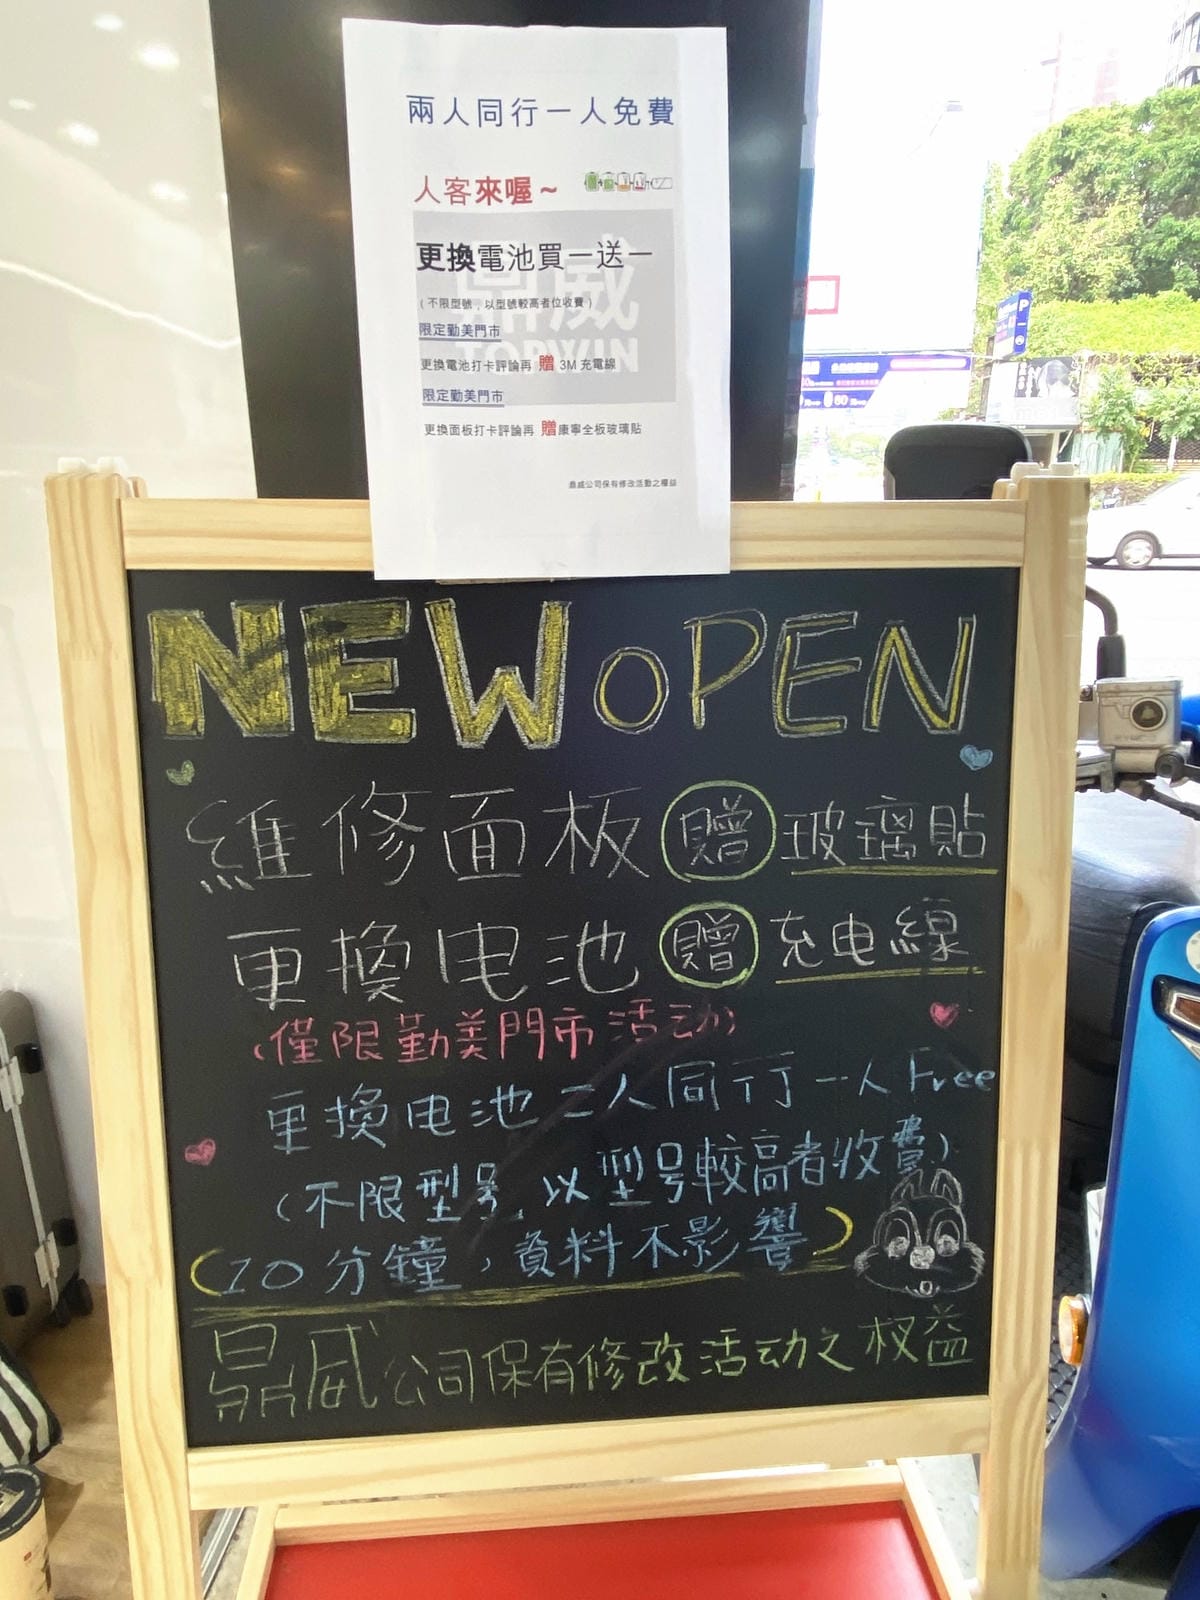 兩人同行一人免費
人客來喔～
更換電池買一送一
（不限型號，以型號較高者位收費）
限定勤美門市
更換電池打卡評論再 贈 3M 充電線
限定勤美門市
更換面板打卡評論再 贈康寧全板玻璃貼
鼎威公司保有修改活動之權益
鼎威
TOPWIN
NEW OPEN
維修面板 贈 玻璃貼
更換电池 贈 充电線
（僅限勤美門市活动）
更換电池二人同行一人Free
（不限型号，以型号較高者收費）
（10分鐘，資料不影響）
鼎威公司保有修改活动之权益
P
60